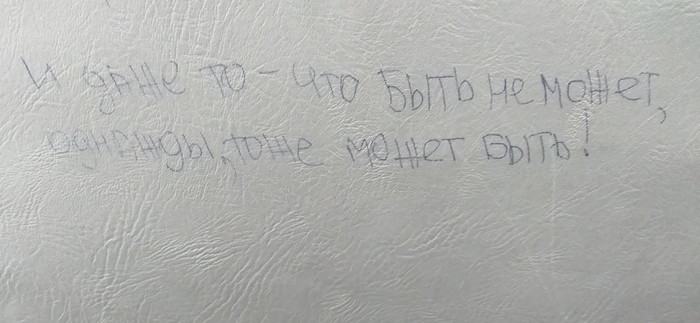 И даже то - что быть не может,
однажды, тоже может быть!